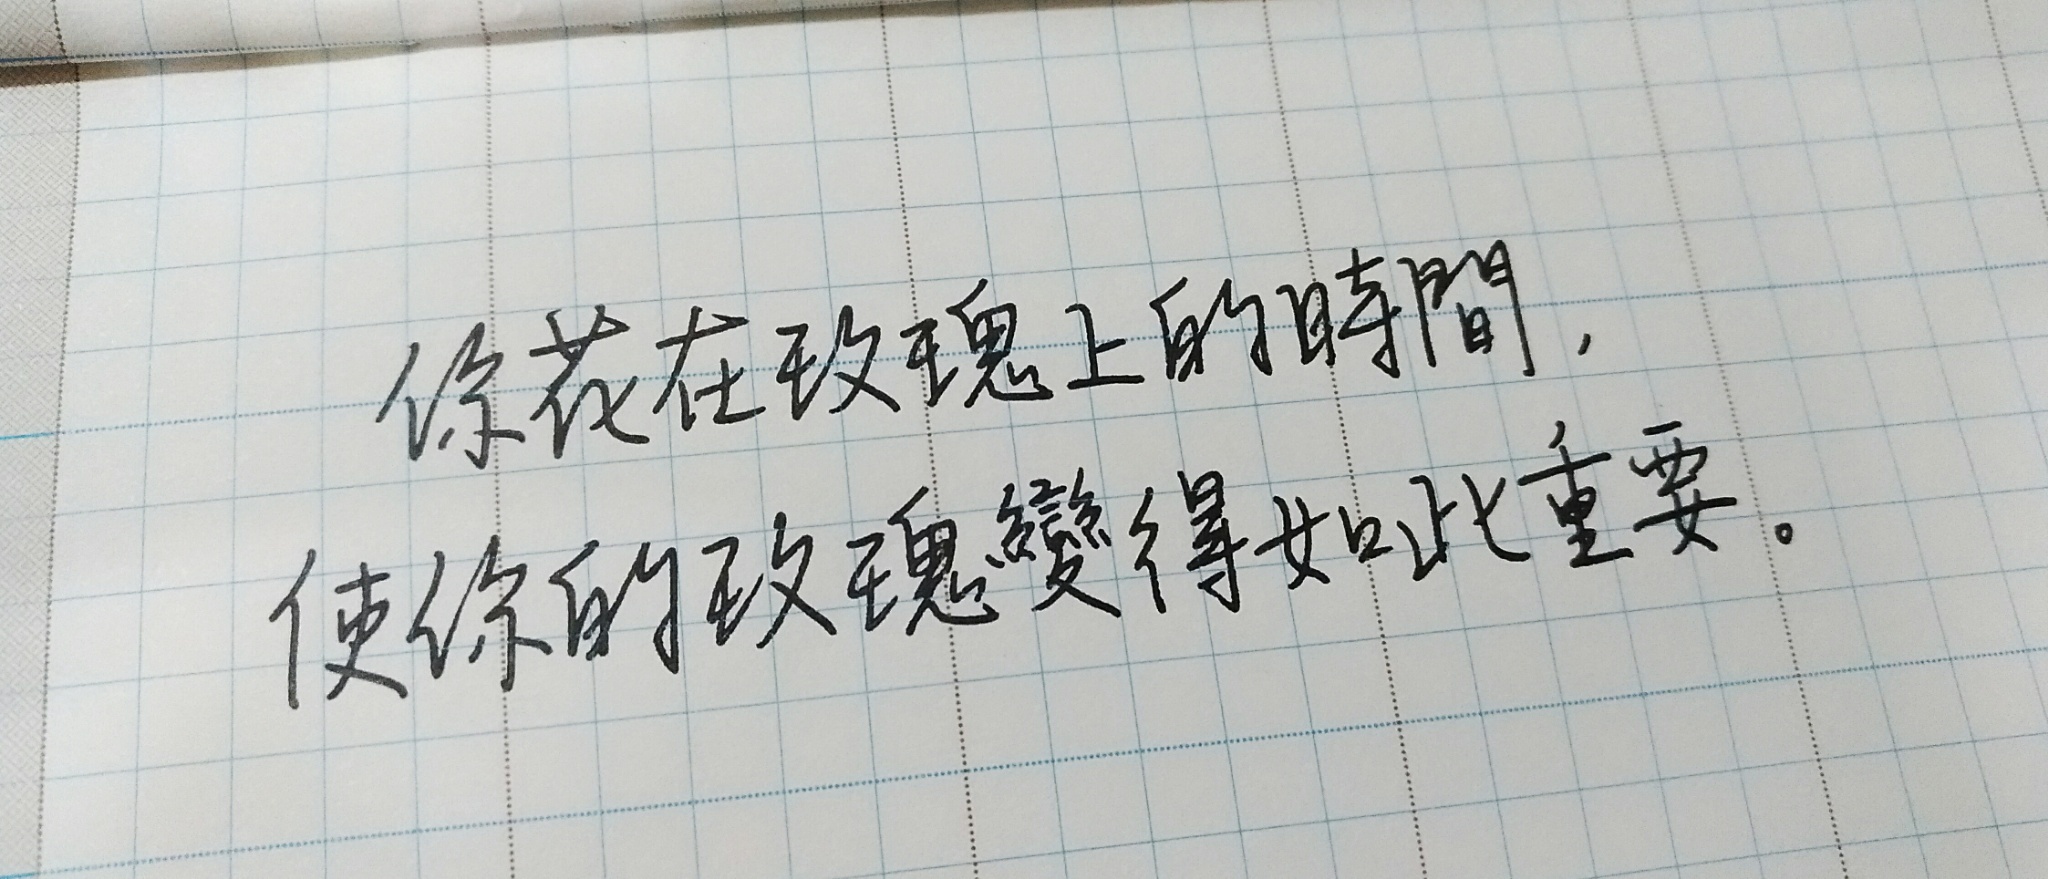 你花在玫瑰上的時間,
使你的玫瑰變得如此重要。